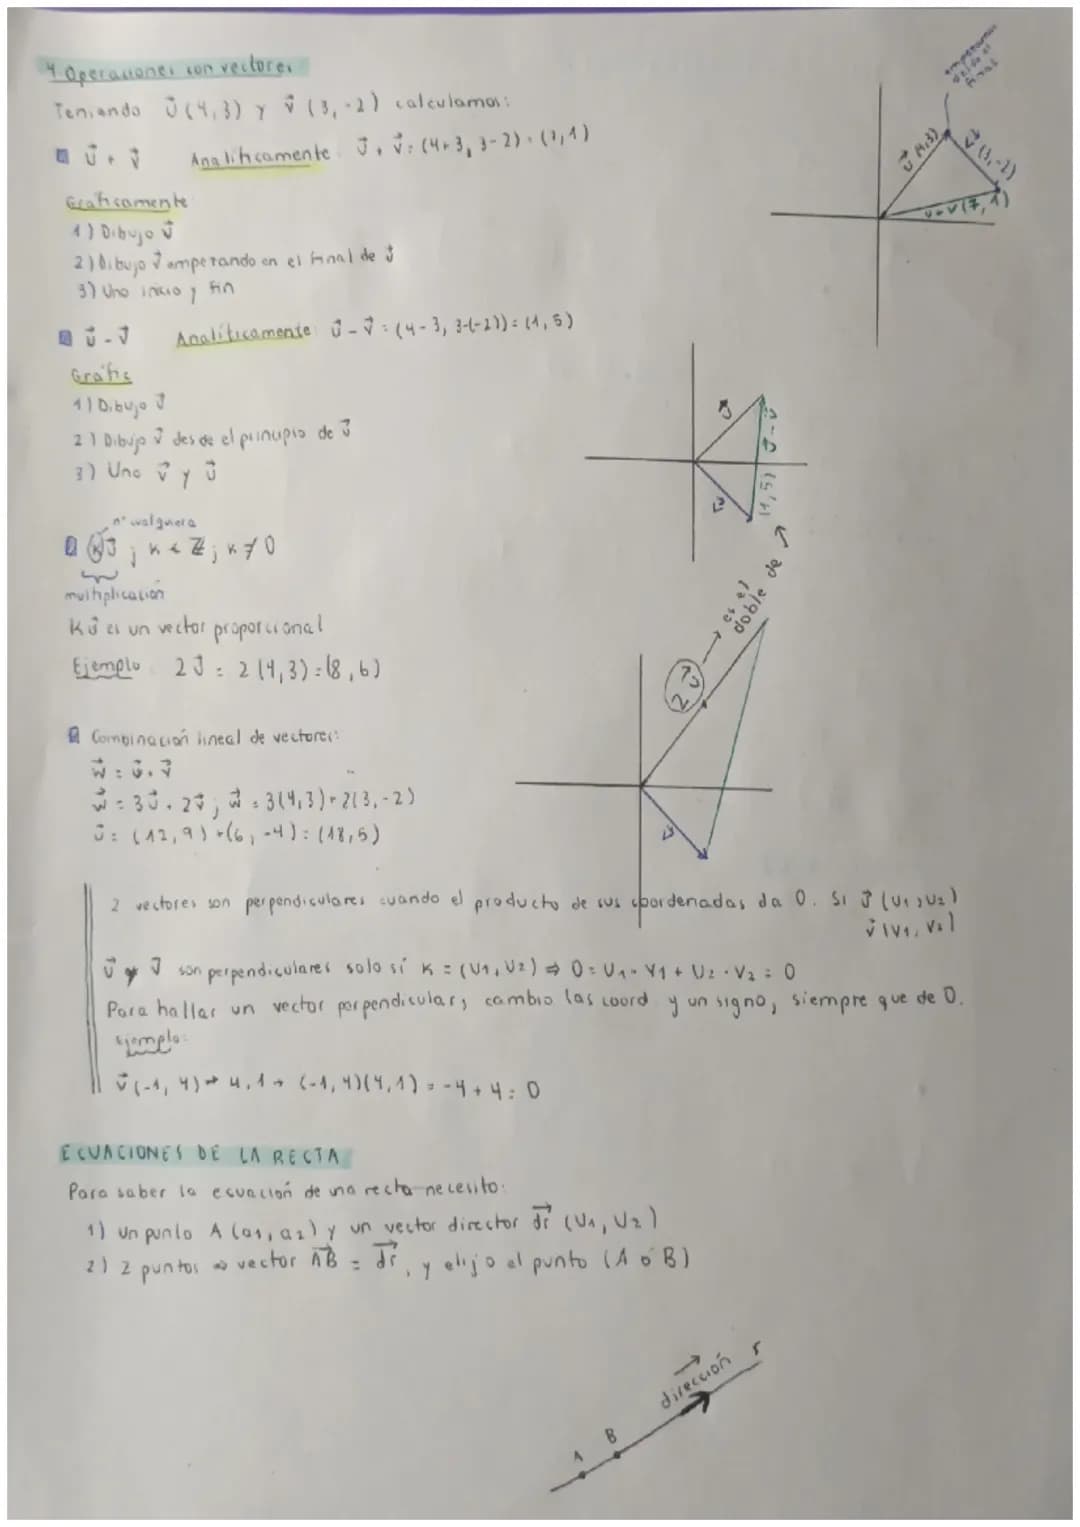 4 Operaciones con vectores
Teniendo u⃗(4,3) y v⃗(3,-2) calculamos:
u⃗ + v⃗ Analíticamente: u⃗ + v⃗ = (4+3, 3-2) = (7,1)
Gráficamente
1) Dibujo u⃗
2) Dibujo v⃗ empezando en el final de u⃗
3) Uno inicio y fin
empezamos desde el final
u⃗ (4,3)
v⃗ (3,-2)
u+v (7,1)
u⃗ - v⃗ Analíticamente: u⃗ - v⃗ = (4-3, 3-(-2)) = (1,5)
Gráfic
1) Dibujo u⃗
2) Dibujo v⃗ desde el principio de u⃗
3) Uno v⃗ y u⃗
u⃗
v⃗
u⃗ - v⃗
(1,5)
nº cualquiera
k u⃗ ; k ∈ ℤ ; k ≠ 0
multiplicación
K u⃗ es un vector proporcional
Ejemplo: 2u⃗ = 2(4,3) = (8,6)
2u⃗ → es el doble de
v⃗
Combinación lineal de vectores:
w⃗ = u⃗ + v⃗
w⃗ = 3u⃗ + 2v⃗ ; w⃗ = 3(4,3) + 2(3,-2)
u⃗ = (12,9) + (6,-4) = (18,5)
2 vectores son perpendiculares cuando el producto de sus coordenadas da 0. Si u⃗ (u₁,u₂)
v⃗ (v₁, v₂)
u⃗ y v⃗ son perpendiculares solo sí K = (U₁, U₂) ⇒ 0 = U₁ · V₁ + U₂ · V₂ = 0
Para hallar un vector perpendicular, cambio las coord. y un signo, siempre que de 0.
Ejemplo:
v⃗ (-1, 4) → 4,1 → (-1,4)(4,1) = -4 + 4 = 0
ECUACIONES DE LA RECTA
Para saber la ecuación de una recta necesito:
1) un punto A (a₁, a₂) y un vector director dr⃗ (U₁, U₂)
2) 2 puntos ⇒ vector AB⃗ = dr⃗, y elijo el punto (A ó B)
A
B
dirección
r